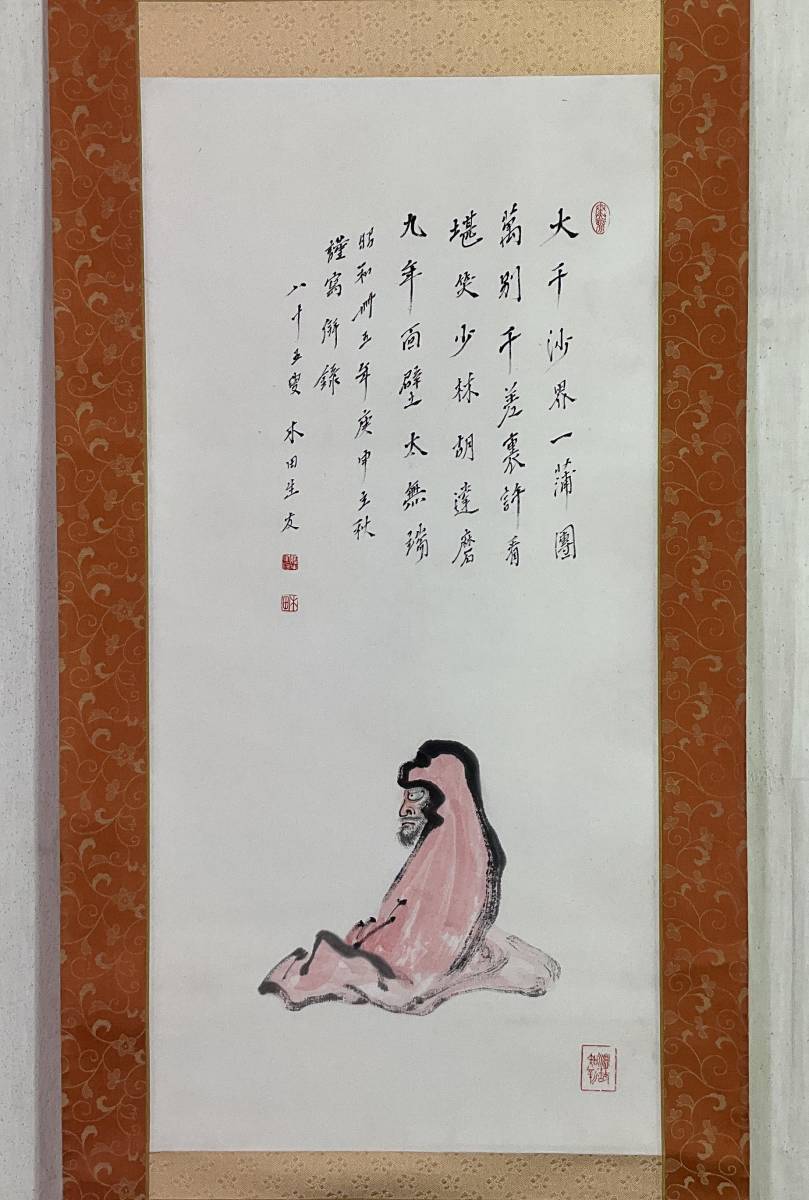 大千沙界一蒲團
萬別千差裏許看
堪笑少林胡達磨
九年面壁太無端
昭和卅五年庚申立秋
謹寫併錄
八十五叟 水田生友
溫故知新